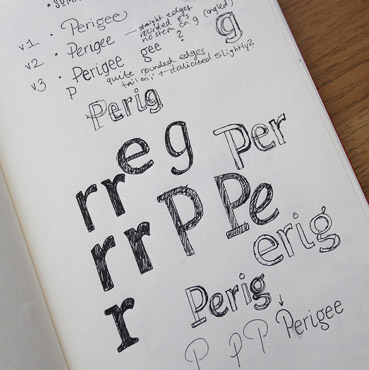 v1 · Perigee
v2 · Perigee — straight edges
rounded
no stem on g (angled)
g
v3 · Perigee
gee ?
P quite rounded edges
+ italicised slightly?
Perig
e g
Per
rr
rr P Pe
erig
r
Perig
P P P Perigee